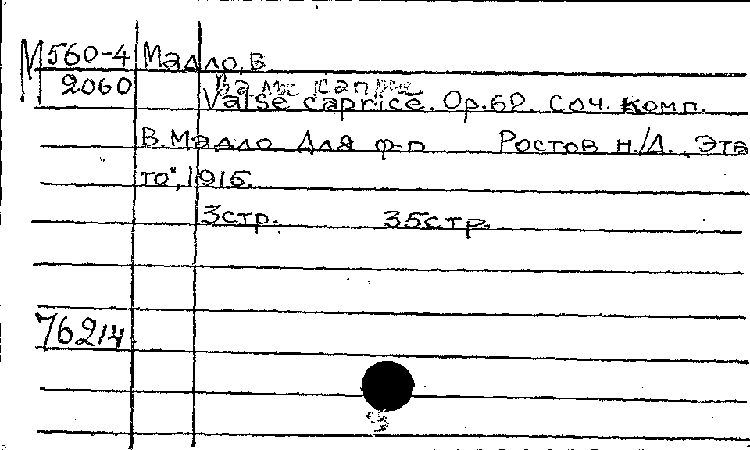 М 560-4 Малло, В
2060 Вальс каприс
Valse caprice. Op. 62. Соч. комп.
В. Малло Для ф-п Ростов н/Д. „Эта
то", 1915.
3стр. 35стр.
76214